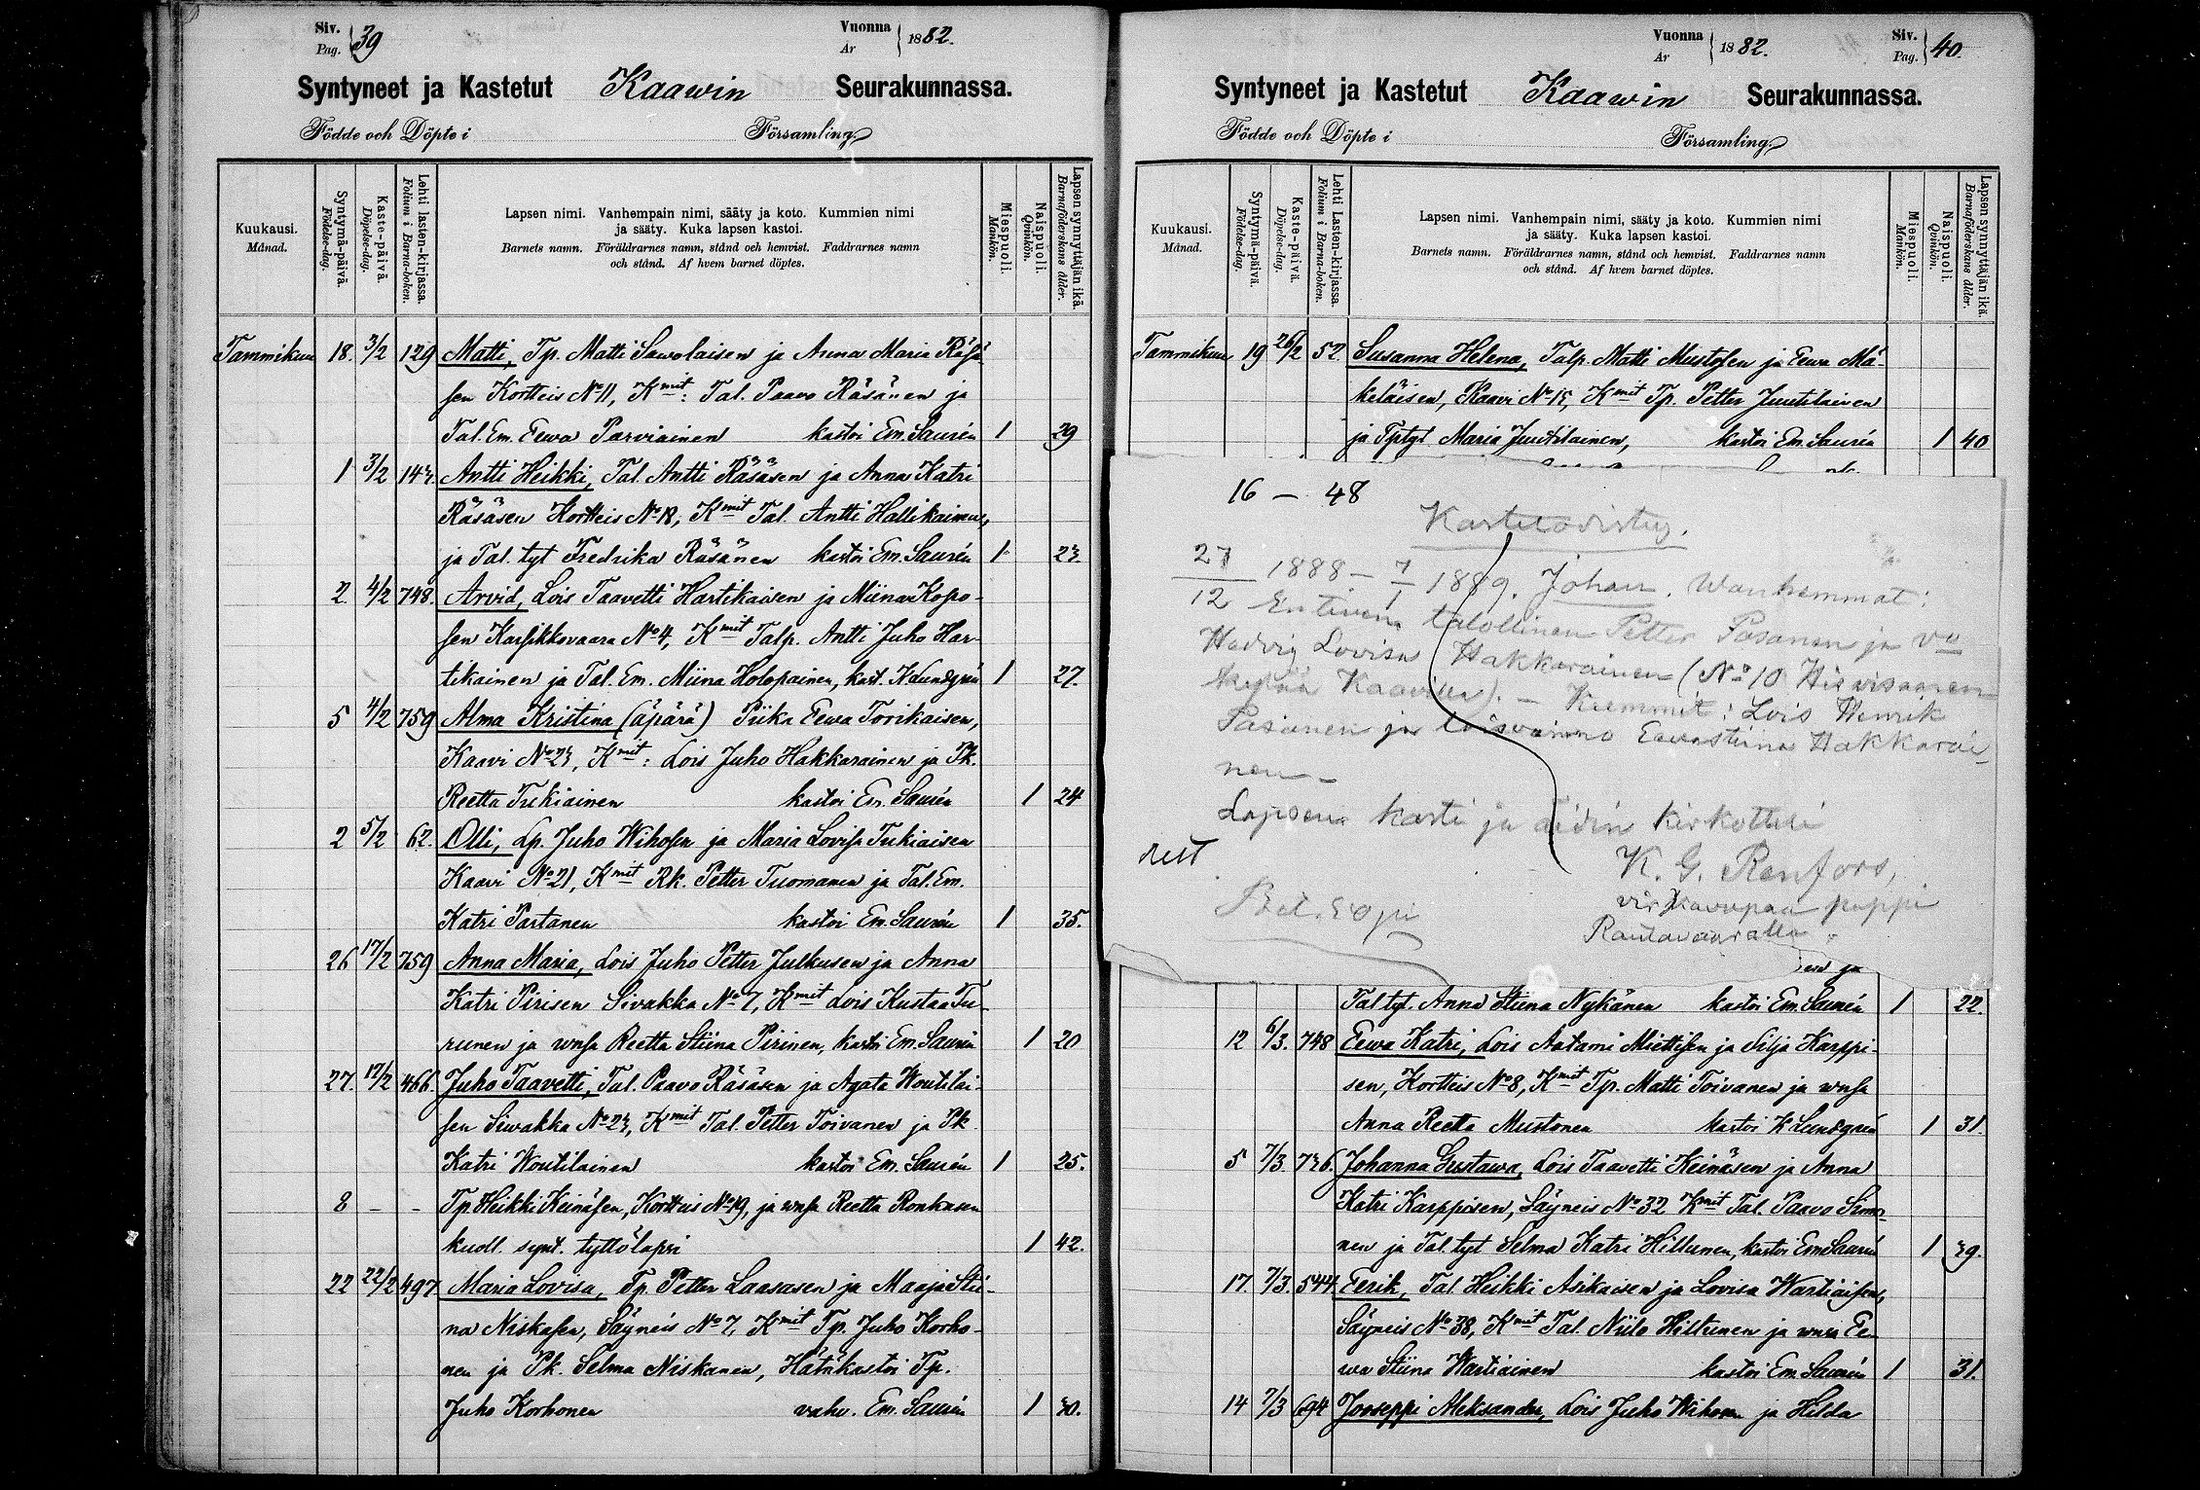 Siv. Pag. 39
Vuonna År 1882.
Syntyneet ja Kastetut Kaawin Seurakunnassa.
Födde och Döpte i Församling
Kuukausi. Månad.
Syntymä-päivä. Födelse-dag.
Kaste-päivä. Döpelse-dag.
Lehti lasten-kirjassa. Folium i Barna-boken.
Lapsen nimi. Vanhempain nimi, sääty ja koto. Kummien nimi
ja sääty. Kuka lapsen kastoi.
Barnets namn. Föräldrarnes namn, stånd och hemvist. Faddrarnes namn
och stånd. Af hvem barnet döptes.
Miespuoli. Mankön.
Naispuoli. Qvinkön.
Lapsen synnyttäjän ikä. Barnaföderskans ålder.
Tammikuu 18. 3/2 129 Matti, Tp. Matti Sawolaisen ja Anna Maria Räsä-
sen Kortteis No 11, Kmit: Tal. Paavo Räsänen ja
Tal. Em. Eewa Parviainen kastoi Em. Saurén 1 29
1 3/2 143. Antti Heikki, Tal. Antti Räsäsen ja Anna Katri
Räsäsen Kortteis No 18, Kmit Tal. Antti Hallikainen,
ja Tal. tyt Fredrika Räsänen kastoi Em. Saurén 1 23.
2. 4/2 748. Arvid, Lois Taavetti Hartikaisen ja Miina Kopo-
sen Karsikkovaara No 4, Kmit Talp. Antti Juho Har-
tikainen ja Tal. Em. Miina Holopainen, kast. K Lundgrén 1 27.
5 4/2 759 Alma Kristina (äpärä) Piika Eewa Torikaisen,
Kaavi No 23, Kmit: Lois Juho Hakkarainen ja Pk.
Reetta Tukiainen kastoi Em. Saurén 1 24
2 5/2 62. Olli, Lp. Juho Wihosen ja Maria Lovisa Tukiaisen
Kaavi No 21, Kmit Rk. Petter Tuomanen ja Tal. Em.
Katri Partanen kastoi Em. Saurén 1 35.
26 17/2 759 Anna Maria, Lois Juho Petter Julkusen ja Anna
Katri Pirisen Sivakka No 7, Kmit Lois Kustaa Tu-
runen ja wnsa Reetta Stiina Pirinen, kastoi Em. Saurén 1 20
27. 19/2 466. Juho Taavetti, Tal. Paavo Räsäsen ja Agata Woutilai-
sen Siwakka No 23, Kmit Tal. Petter Toivanen ja Pk
Katri Woutilainen kastoi Em. Saurén 1 25.
8 - - Tp. Heikki Keinäsen, Kortteis No 19, ja wnsa Reetta Ronkasen
kuoll. synt. tyttölapsi 1 42.
22 22/2 497 Maria Lovisa, Tp. Petter Laasasen ja Maaja Stii-
na Niskasen, Säyneis No 7, Kmit Tp. Juho Korho-
nen ja Pk. Selma Niskanen, Hätäkastoi Tp.
Juho Korhonen vahv. Em. Saurén 1 30.
Vuonna År 1882.
Siv. Pag. 40.
Syntyneet ja Kastetut Kaawin Seurakunnassa.
Födde och Döpte i Församling
Kuukausi. Månad.
Syntymä-päivä. Födelse-dag.
Kaste-päivä. Döpelse-dag.
Lehti Lasten-kirjassa. Folium i Barna-boken.
Lapsen nimi. Vanhempain nimi, sääty ja koto. Kummien nimi
ja sääty. Kuka lapsen kastoi.
Barnets namn. Föräldrarnes namn, stånd och hemvist. Faddrarnes namn
och stånd. Af hvem barnet döptes.
Miespuoli. Mankön.
Naispuoli. Qvinkön.
Lapsen synnyttäjän ikä. Barnaföderskans ålder.
Tammikuu 19 26/2 52. Susanna Helena, Talp. Matti Mustosen ja Eewa Mä-
keläisen, Kaavi No 15, Kmit Tp. Petter Juutilainen
ja Tptyt Maria Juutilainen, kastoi Em. Saurén 1 40
16 – 48
Kastetodistus.
27/12 1888 – 7/1 1889. Johan. Wanhemmat:
Entinen talollinen Petter Pasanen ja vo
Hedvig Lovisa Hakkarainen (No 10 Hirvisaaren
kylää Kaavilla). – Kummit: Lois Henrik
Pasanen ja loisvaimo Eevastiina Hakkarai-
nen –
Lapsen kasti ja äidin kirkotteli
K. G. Renfors,
virkavapaa pappi
Rautavaaralla.
en ja
Tal tyt. Anna Stiina Nykänen kastoi Em. Saurén 1 22.
12 6/3. 748 Eewa Katri, Lois Aatami Miettisen ja Silja Karppi-
sen, Kortteis No 8, Kmit Tp. Matti Toivanen ja wnsa
Anna Reetta Mustonen kastoi K Lundgrén 1 31.
5 7/3. 736. Johanna Gustawa, Lois Taavetti Keinäsen ja Anna
Katri Karppisen, Säyneis No 32 Kmit Tal. Paavo Simo-
nen ja Tal. tyt Selma Katri Hiltunen, kastoi Em Saurén 1 39.
17. 7/3. 544. Eerik, Tal. Heikki Asikaisen ja Lovisa Wartiaisen,
Säyneis No 38, Kmit Tal. Niilo Hiltunen ja wnsa Ee-
wa Stiina Wartiainen kastoi Em Saurén 1 31.
14 7/3 694 Jooseppi Aleksander, Lois Juho Wihosen ja Hilda